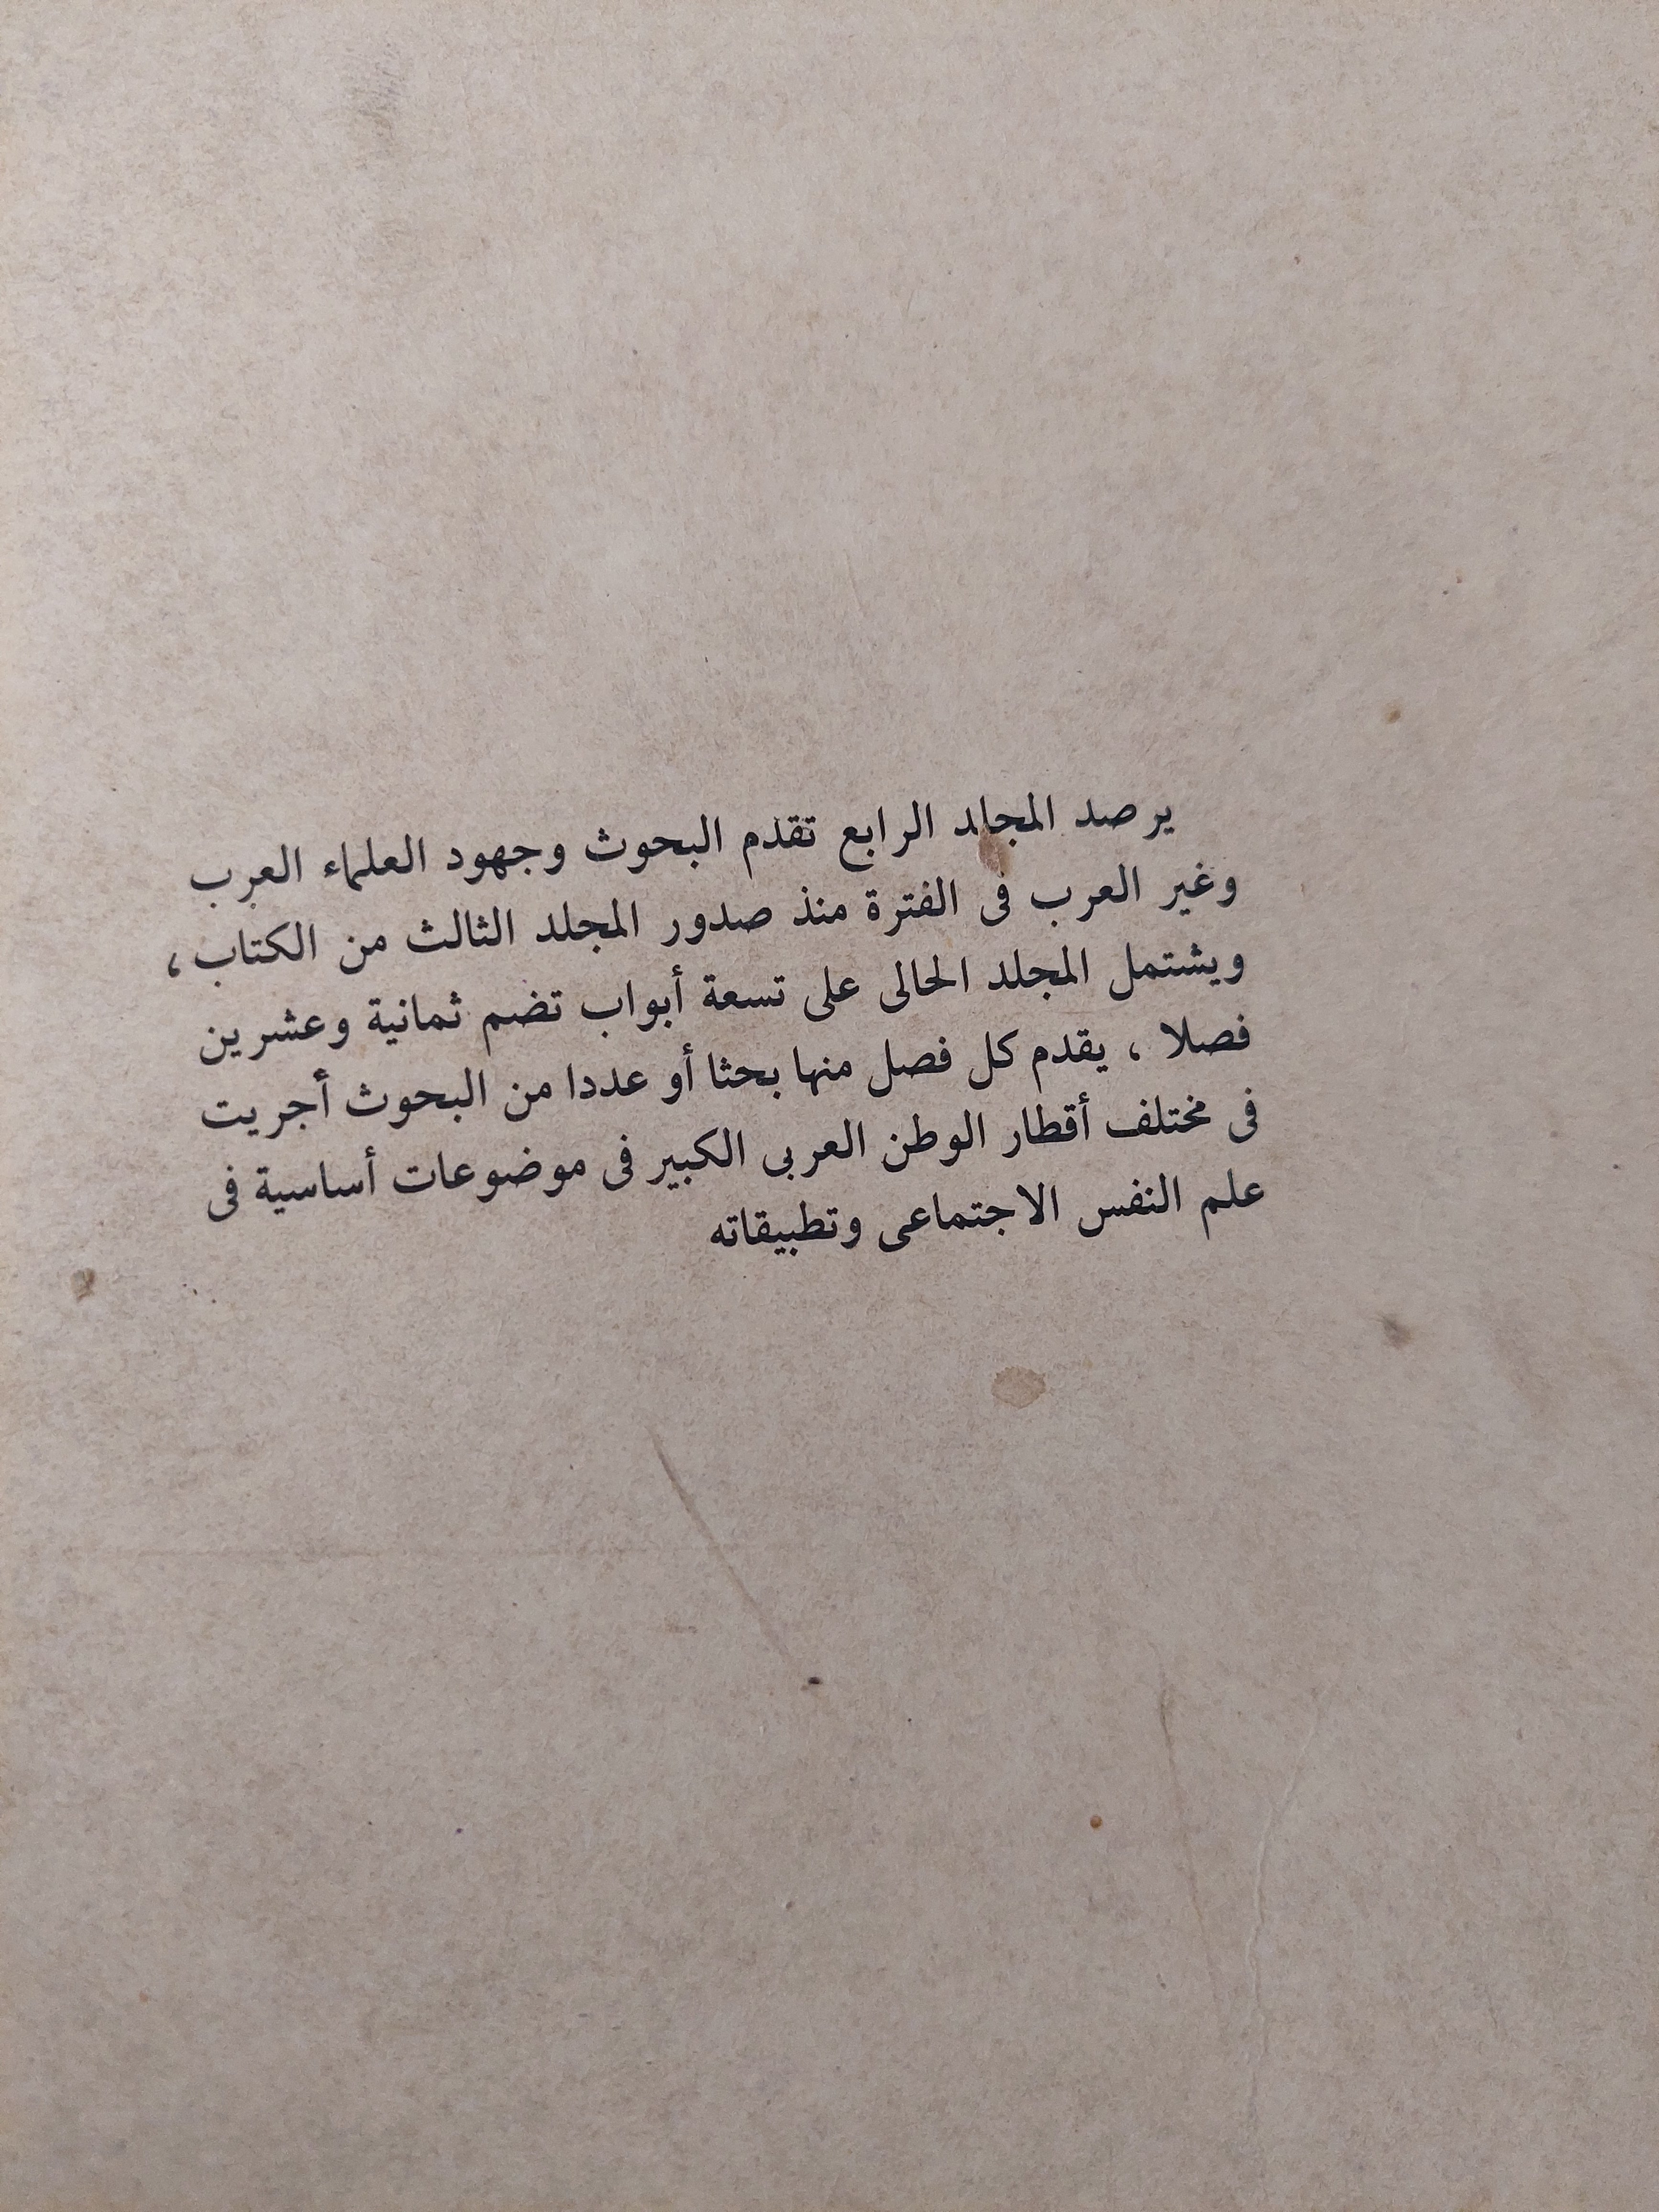 يرصد المجلد الرابع تقدم البحوث وجهود العلماء العرب
وغير العرب فى الفترة منذ صدور المجلد الثالث من الكتاب ،
ويشتمل المجلد الحالى على تسعة أبواب تضم ثمانية وعشرين
فصلا ، يقدم كل فصل منها بحثا أو عددا من البحوث أجريت
فى مختلف أقطار الوطن العربى الكبير فى موضوعات أساسية فى
علم النفس الاجتماعى وتطبيقاته